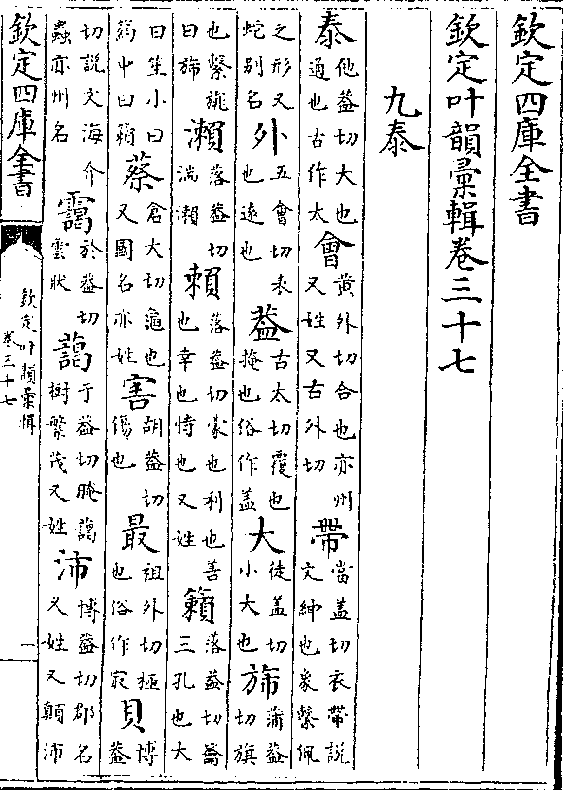 欽定四庫全書
欽定叶韻彚輯卷三十七
九泰
泰他葢切大也通也古作太會黄外切合也亦州又姓又古外切帶當盖切衣帶説文紳也象繫佩
之形又蛇别名外五會切表也逺也葢古太切覆也掩也俗作盖大徒盖切小大也斾蒲葢切旗
也繫旐曰斾瀬落葢切湍瀬頼落葢切蒙也利也善也幸也恃也又姓籟落葢切籥三孔也大
曰笙小曰箹中曰籟蔡倉大切龜也又國名亦姓害胡葢切傷也最祖外切極也俗作㝡貝博葢
切説文海介蟲亦州名靄於葢切雲狀藹于葢切晻藹樹繁茂又姓沛博葢切郡名又姓又顛沛
欽定四庫全書
欽定叶韻彚輯
卷三十七
一